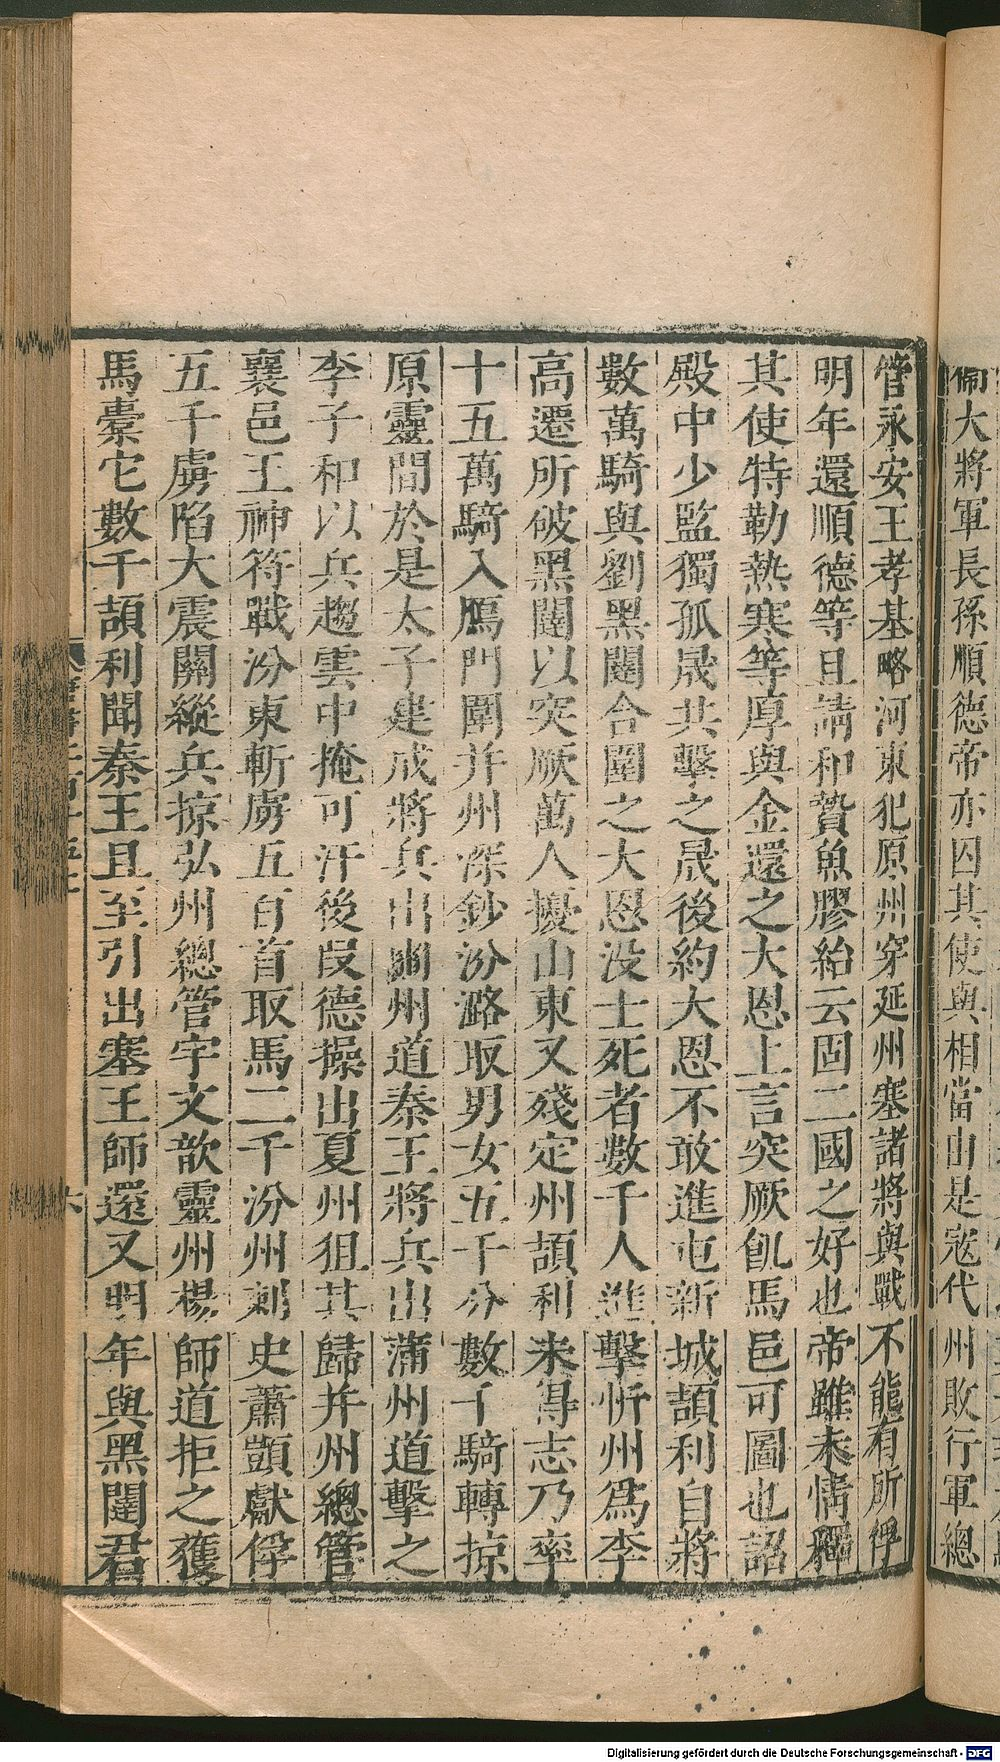 衞大將軍長孫順德帝亦囚其使與相當由是寇代州敗行軍總
管永安王孝基略河東犯原州穿延州塞諸將與戰不能有所俘
明年還順德等且請和贄魚膠紿云固二國之好也帝雖未情釋
其使特勒熱寒等厚與金還之大恩上言突厥飢馬邑可圖也詔
殿中少監獨孤晟共擊之晟後約大恩不敢進屯新城頡利自將
數萬騎與劉黑闥合圍之大恩沒士死者數千人進擊忻州爲李
高遷所破黑闥以突厥萬人擾山東又殘定州頡利未得志乃率
十五萬騎入鴈門圍并州深鈔汾潞取男女五千分數千騎轉掠
原靈間於是太子建成將兵出豳州道秦王將兵出蒲州道擊之
李子和以兵趨雲中掩可汗後段德操出夏州狙其歸并州總管
襄邑王神符戰汾東斬虜五百首取馬二千汾州刺史蕭顗獻俘
五千虜陷大震關縱兵掠弘州總管宇文歆靈州楊師道拒之獲
馬橐它數千頡利聞秦王且至引出塞王師還又明年與黑闥君
六
Digitalisierung gefördert durch die Deutsche Forschungsgemeinschaft - DFG